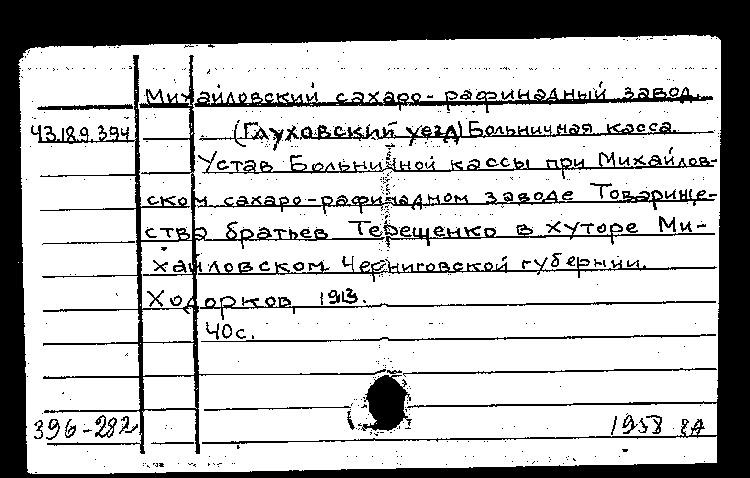 Михайловский сахаро-рафинадный завод.
Ч3.189.394 (Глуховский уезд) Больничная касса.
Устав Больничной кассы при Михайлов-
ском сахаро-рафинадном заводе Товарище-
ства братьев Терещенко в хуторе Ми-
хайловском Черниговской губернии.
Ходорков, 1913.
40с.
396-282 1958 8А